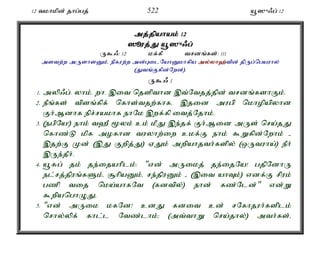 12 வமாமின் தாப்பத் 522 யூஸுஃப் 12
அத்தியாயம் 12
ஸூரத்து யூஸுஃப்
ருகூஃ: 12 மக்கீ வசனங்கள்: 111
அளவற்ற அருளாளனும், நிகரற்ற அன்புடையோனுமாகிய அல்லாஹ்வின் திருப்பெயரால்
(துவங்குகின்றேன்)
ருகூஃ 1
1. அலிஃப். லாம். றா. இவை தெளிவான இவ்வேதத்தின் வசனங்களாகும்.
2. நீங்கள் விளங்கிக் கொள்வதற்காக, இதனை அரபி மொழியிலான
குர்ஆனாக நிச்சயமாக நாமே இறக்கி வைத்தோம்.
3. (நபியே!) நாம் வஹீ மூலம் உம் மீது இந்தக் குர்ஆனை அருள் செய்தது
கொண்டு மிக அழகான வரலாற்றை உமக்கு நாம் கூறுகின்றோம் -
இதற்கு முன் (இது குறித்து) ஏதும் அறியாதவர்களில் (ஒருவராய்) நீர்
இருந்தீர்.
4. யூசுஃப் தம் தந்தையாரிடம்: "என் அருமைத் தந்தையே! பதினோரு
நட்சத்திரங்களும், சூரியனும், சந்திரனும் - (இவை யாவும்) எனக்கு சிரம்
பணி வதை மெய்யாகவே (கனவில்) நான் கண்டேன்" என்று
கூறியபொழுது,
5. "என் அருமை மகனே! உனது கனவை உன் சகோதரர்களிடம்
சொல்லிக் காட்ட வேண்டாம்; (அவ்வாறு செய்தால்) அவர்கள்,